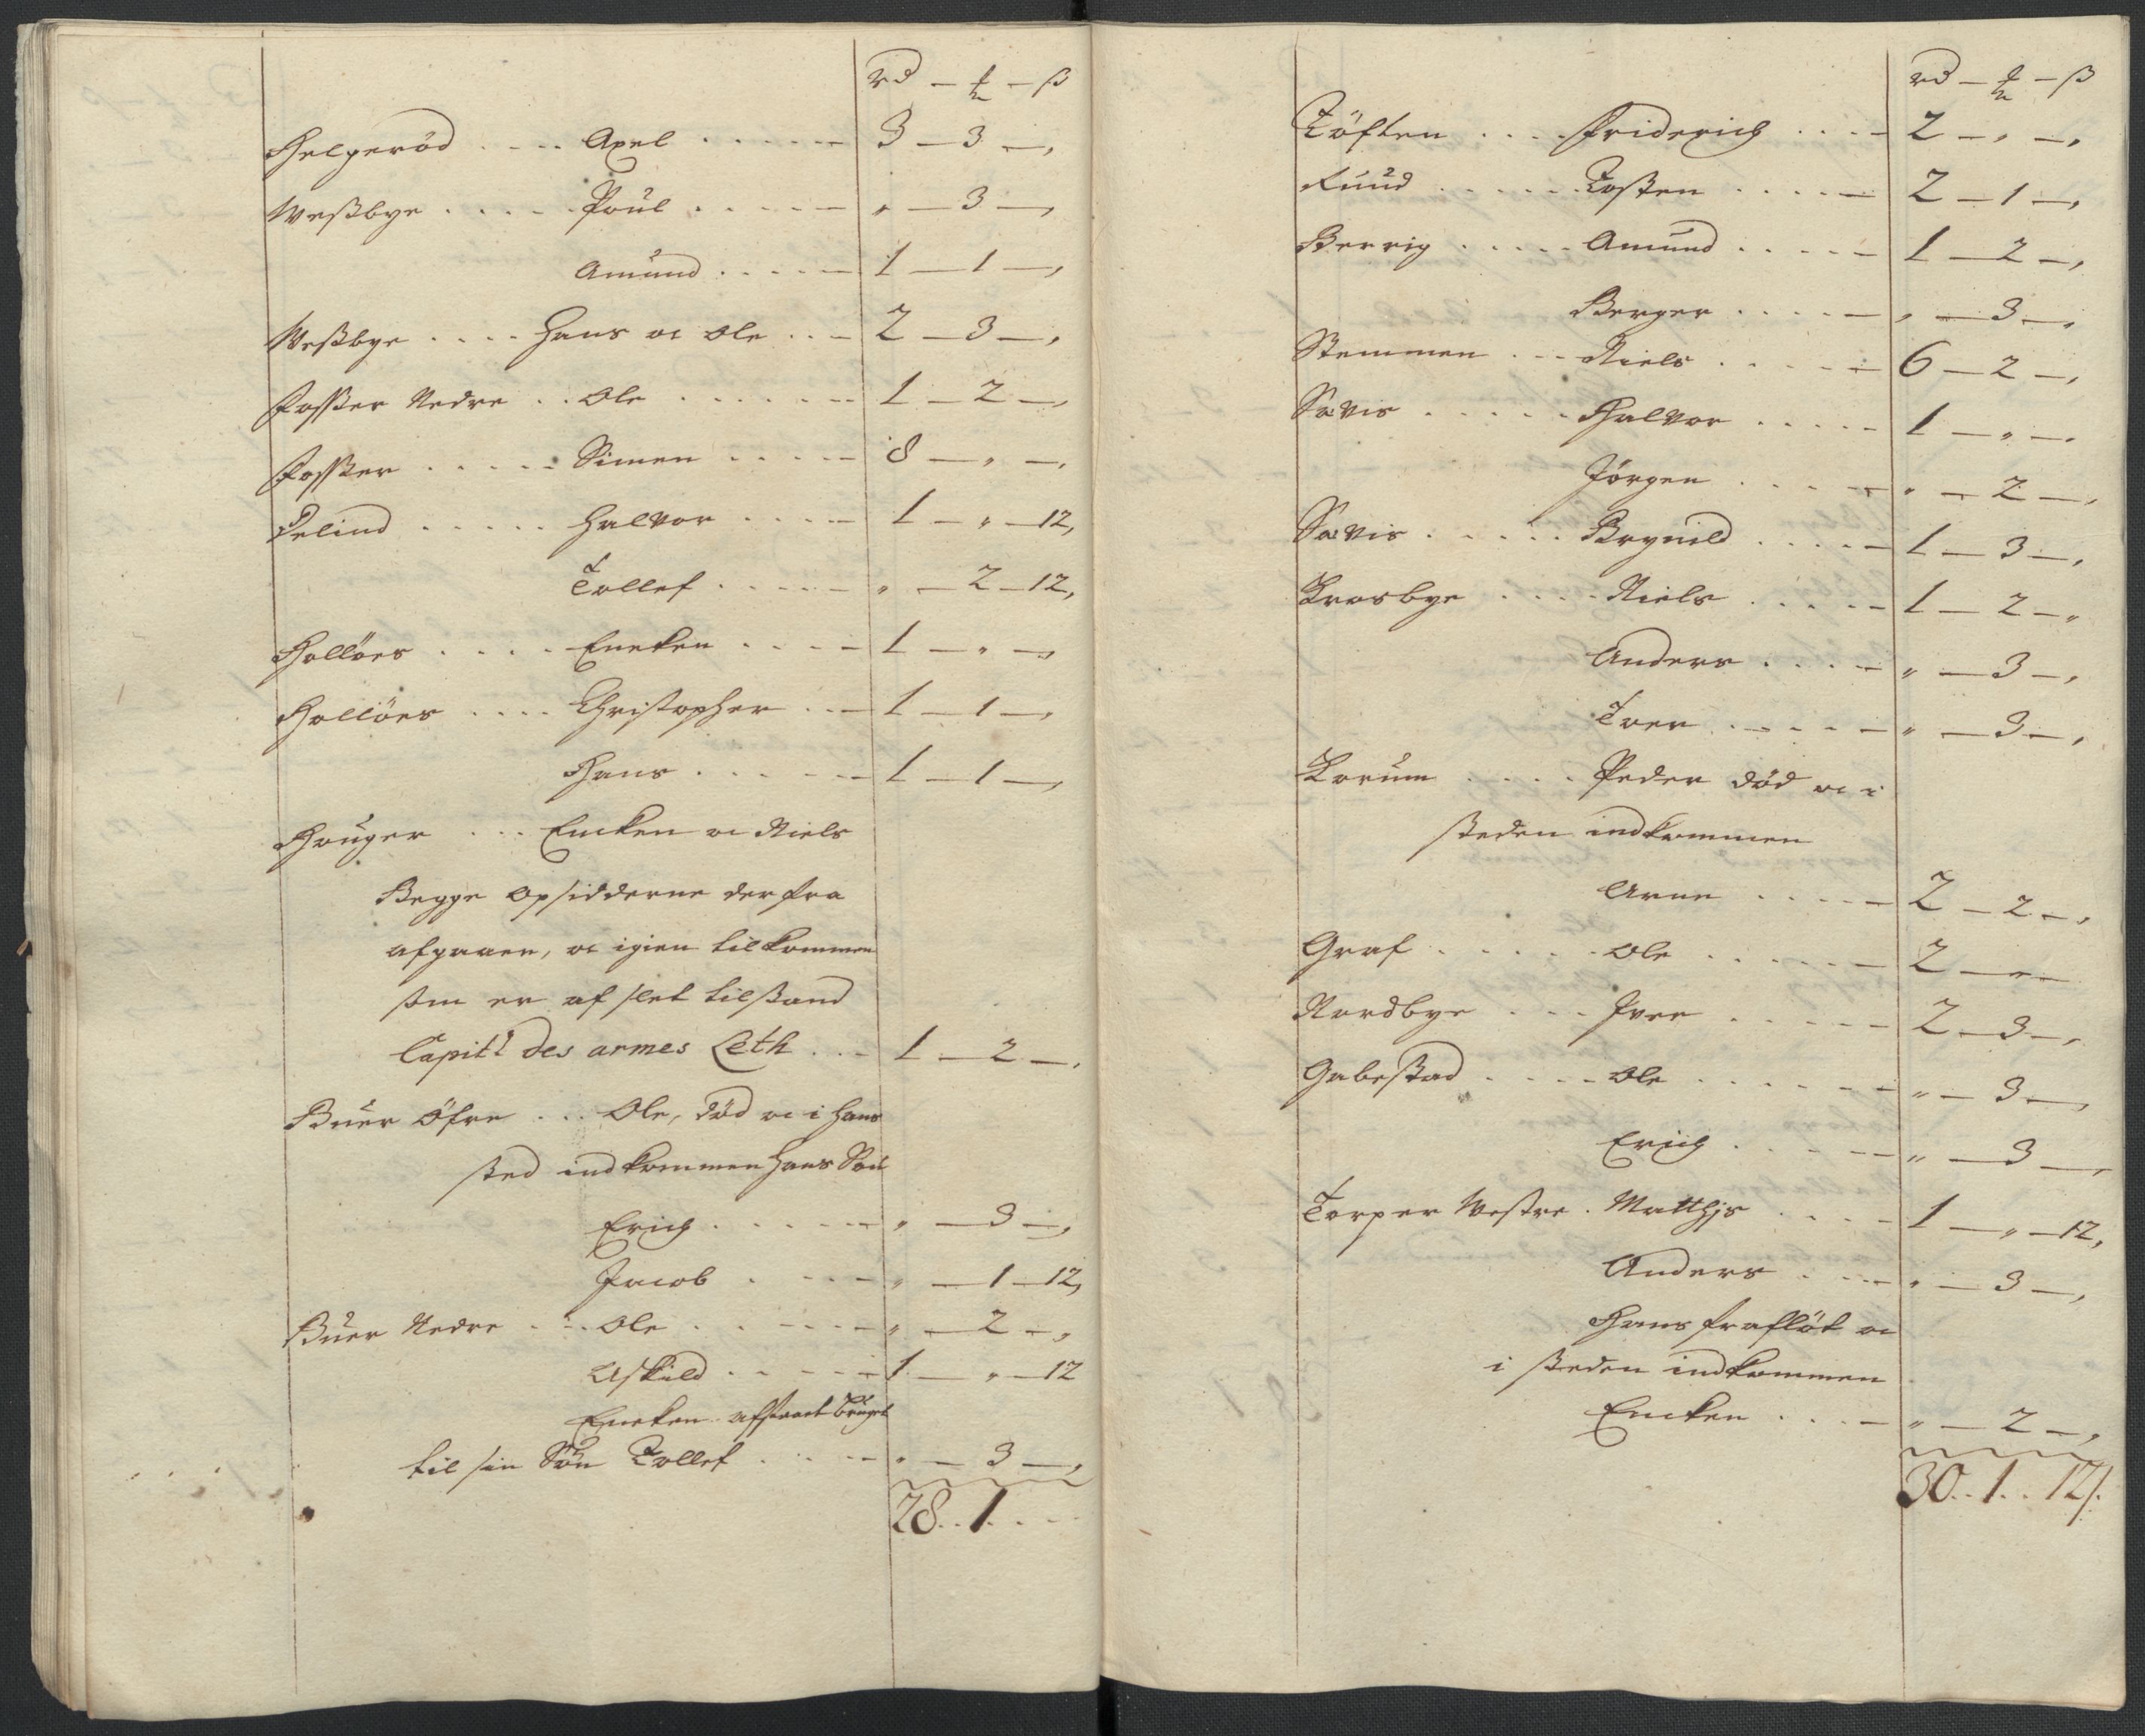 rd — ½ — ß
Helgerød .... Axel ..... 3 — 3 — ,
Westbye .... Poul ..... „ — 3 — ,
Amund ..... 1 — 1 — ,
Westbye .... Hans oc Ole ... 2 — 3 — ,
Fosser Nedre .. Ole ...... 1 — 2 — ,
Fosser ..... Simen ..... 8 — „ — ,
Delind ..... Halvor .... 1 — „ — 12,
Tollef ..... „ — 2 — 12,
Holløes .... Encken .... 1 — „ — ,
Holløes .... Christopher ... 1 — 1 — ,
Hans ..... 1 — 1 — ,
Houger ... Encken oc Niels
Begge opsidderne derfra
afgaaen, oc igien tilkommen
som er af slet tilstand
Capit: des armes Leth ... 1 — 2 — ,
Buer Öfre ... Ole, død oc i hans
sted indkommen hans Søn
Erich ..... „ — 3 — ,
Jacob .... „ — 1 — 12,
Buer Nedre ... Ole ..... „ — 2 — ,
Askild ..... 1 — „ — 12
Encken afstaaet bruget
til sin Søn Tollef .... „ — 3 — ,
28 .. 1 ...
rd — ½ — ß
Töften .... Friderich .... 2 — „ — ,
Ruud ..... Tosten .... 2 — 1 — ,
Berrig ..... Amund ..... 1 — 2 — ,
Berger ..... „ — 3 — ,
Stemmen ... Niels ..... 6 — 2 — ,
Savis ..... Halvor ..... 1 — „ — .
Jörgen .... „ — 2 — ,
Savis ..... Brynild ..... 1 — 3 — ,
Krosbye .... Niels ..... 1 — 2 — „
Anders .... „ — 3 — ,
Iver ..... „ — 3 — ,
Korum .... Peder død oc i
steden indkommen
Arne .... 2 — 2 — ,
Graf ..... Ole ...... 2 — „ —
Nordbye ... Iver ..... 2 — 3 — ,
Gabestad .... Ole ...... „ — 3 — ,
Erich ..... „ — 3 — ,
Torper Westre . Matthjs .... 1 — „ — 12,
Anders .... „ — 3 — ,
Hans fraflöt oc
i steden indkommen
Encken .... „ — 2 — ,
30 .. 1 .. 12ß.